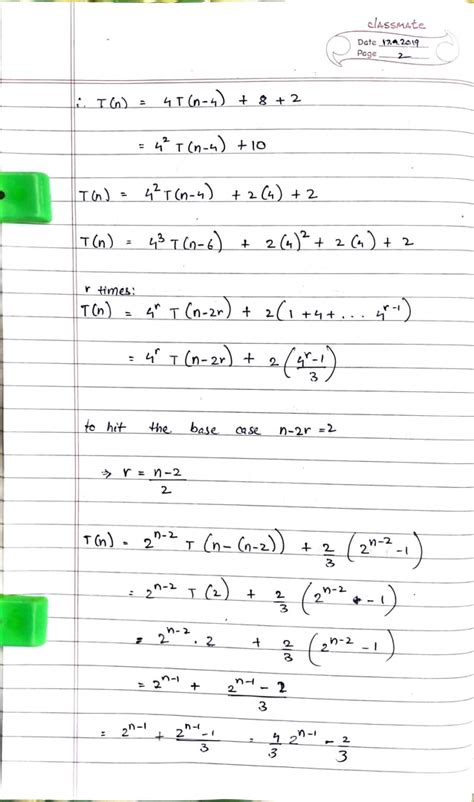 classmate
Date 17.9.2019
Page 2
∴ T(n) = 4T(n-4) + 8 + 2
= 4² T(n-4) + 10
T(n) = 4² T(n-4) + 2(4) + 2
T(n) = 4³ T(n-6) + 2(4)² + 2(4) + 2
r times:
T(n) = 4ʳ T(n-2r) + 2(1+4+... 4ʳ⁻¹)
= 4ʳ T(n-2r) + 2((4ʳ-1)/3)
to hit the base case n-2r = 2
⇒ r = (n-2)/2
T(n) = 2ⁿ⁻² T(n-(n-2)) + 2/3 (2ⁿ⁻² - 1)
= 2ⁿ⁻² T(2) + 2/3 (2ⁿ⁻² - 1)
= 2ⁿ⁻² . 2 + 2/3 (2ⁿ⁻² - 1)
= 2ⁿ⁻¹ + (2ⁿ⁻¹ - 2)/3
= 2ⁿ⁻¹ + (2ⁿ⁻¹ - 1)/3 = 4/3 2ⁿ⁻¹ - 2/3